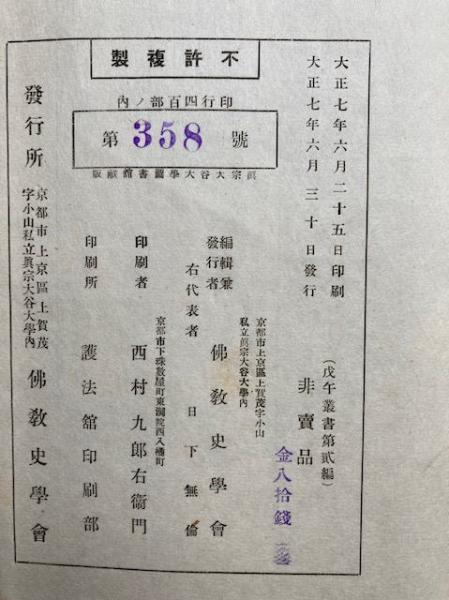 不許複製
印行四百部ノ內
第358號
眞宗大谷大學圖書館藏版
大正七年六月二十五日印刷
大正七年六月三十日發行
（戊午叢書第貳編）
非賣品
金八拾錢
京都市上京區上賀茂字小山
私立眞宗大谷大學內
編輯兼
發行者
佛敎史學會
右代表者
日下無倫
京都市下珠數屋町東洞院西入橘町
印刷者
西村九郎右衞門
印刷所
護法館印刷部
發行所
京都市上京區上賀茂
字小山私立眞宗大谷大學內
佛敎史學會